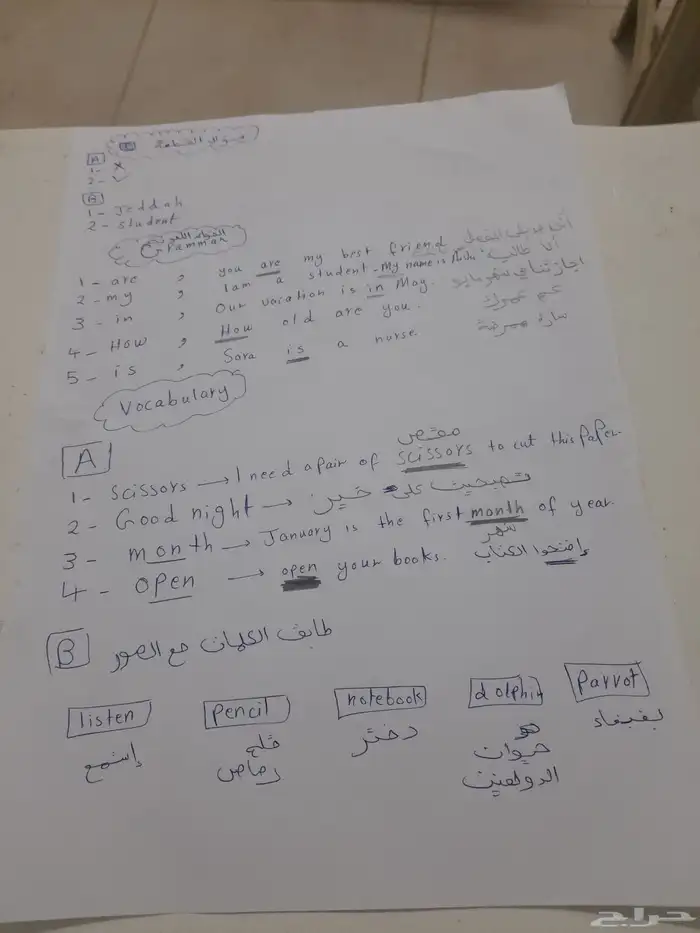 سؤال القطعة
A
1- ✗
2- ✓
B
1- Jeddah
2- student
القواعد
Grammar
1- are , you are my best friend
2- my , I am a student - My name is انا طالب
3- in , Our vacation is in May. اجازتنا في شهر مايو
4- How , How old are you. كم عمرك
5- is , Sara is a nurse. سارة ممرضة
Vocabulary
A
مقص
1- Scissors → I need a pair of scissors to cut this Paper.
2- Good night → تصبحين على خير
3- month → January is the first month of year.
شهر
4- open → open your books. إفتحوا الكتاب
B طابق الكلمات مع الصور
listen pencil notebook dolphin Parrot
إستمع قلم رصاص دفتر حيوان الدولفين ببغاء
حراج